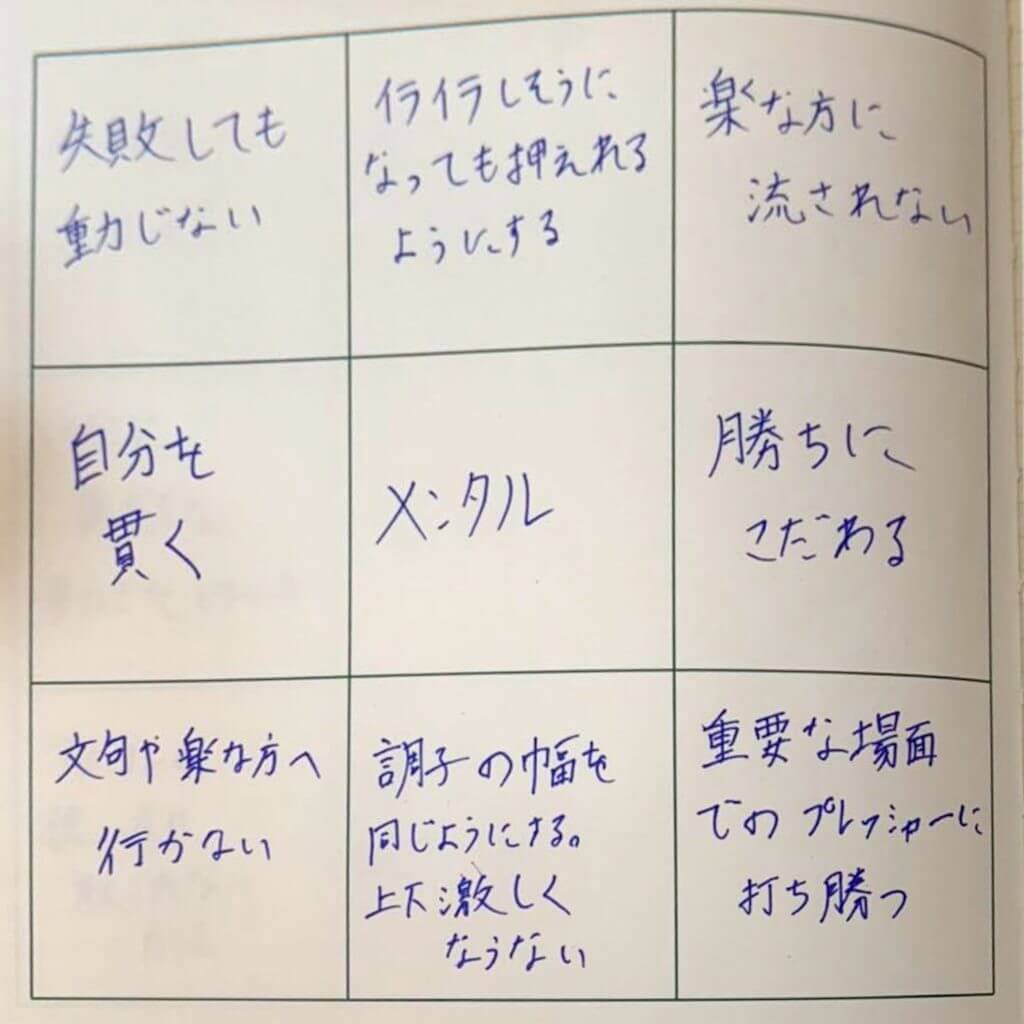 失敗しても
動じない
イライラしそうに
なっても押えれる
ようにする
楽な方に
流されない
自分を
貫く
メンタル
勝ちに
こだわる
文句や楽な方へ
行かない
調子の幅を
同じようにする。
上下激しく
ならない
重要な場面
でのプレッシャーに
打ち勝つ